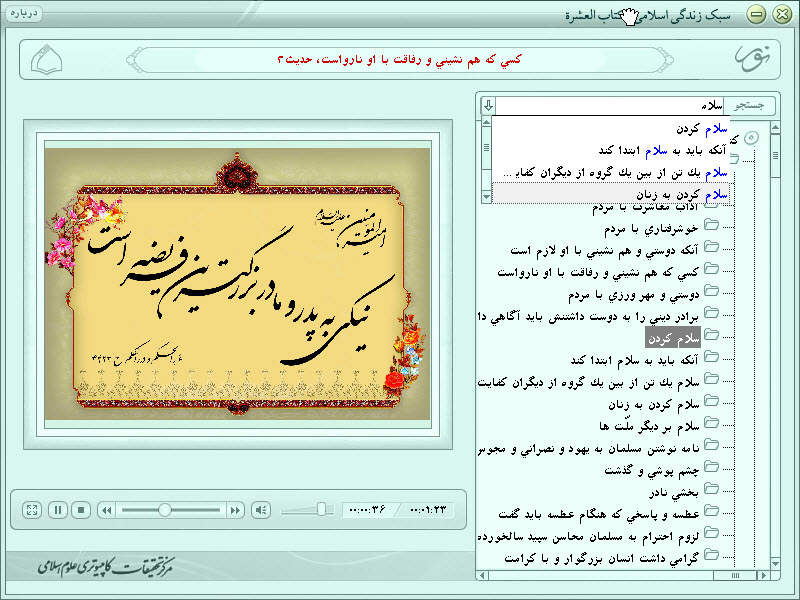 سبک زندگی اسلامی کتاب العشرة
درباره
كسي كه هم نشيني و رفاقت با او نارواست، حديث۲
نور
امیرالمؤمنین علیه‌السلام
نیکی به پدر و مادر بزرگترین فریضه است
غررالحکم و دررالکلم ح ۴۴۲۳
جستجو
سلام
سلام كردن
آنكه بايد به سلام ابتدا كند
سلام يك تن از بين يك گروه از ديگران كفايت ...
سلام كردن به زنان
آداب معاشرت با مردم
خوشرفتاري با مردم
آنكه دوستي و هم نشيني با او لازم است
كسي كه هم نشيني و رفاقت با او نارواست
دوستي و مهر ورزي با مردم
برادر ديني را به دوست داشتنش بايد آگاهي دا
سلام كردن
آنكه بايد به سلام ابتدا كند
سلام يك تن از بين يك گروه از ديگران كفايت
سلام كردن به زنان
سلام بر ديگر ملّت ها
نامه نوشتن مسلمان به يهود و نصراني و مجوس
چشم پوشي و گذشت
بخشي نادر
عطسه و پاسخي كه هنگام عطسه بايد گفت
لزوم احترام به مسلمان محاسن سپيد سالخورده
گرامي داشت انسان بزرگوار و با كرامت
۰۰:۰۰:۳۶ / ۰۰:۰۱:۲۳
مرکز تحقیقات کامپیوتری علوم اسلامی